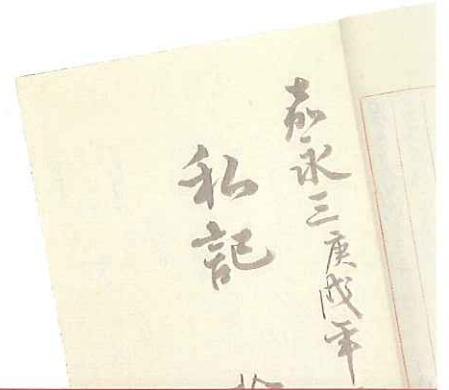 嘉永三庚戌年
私記